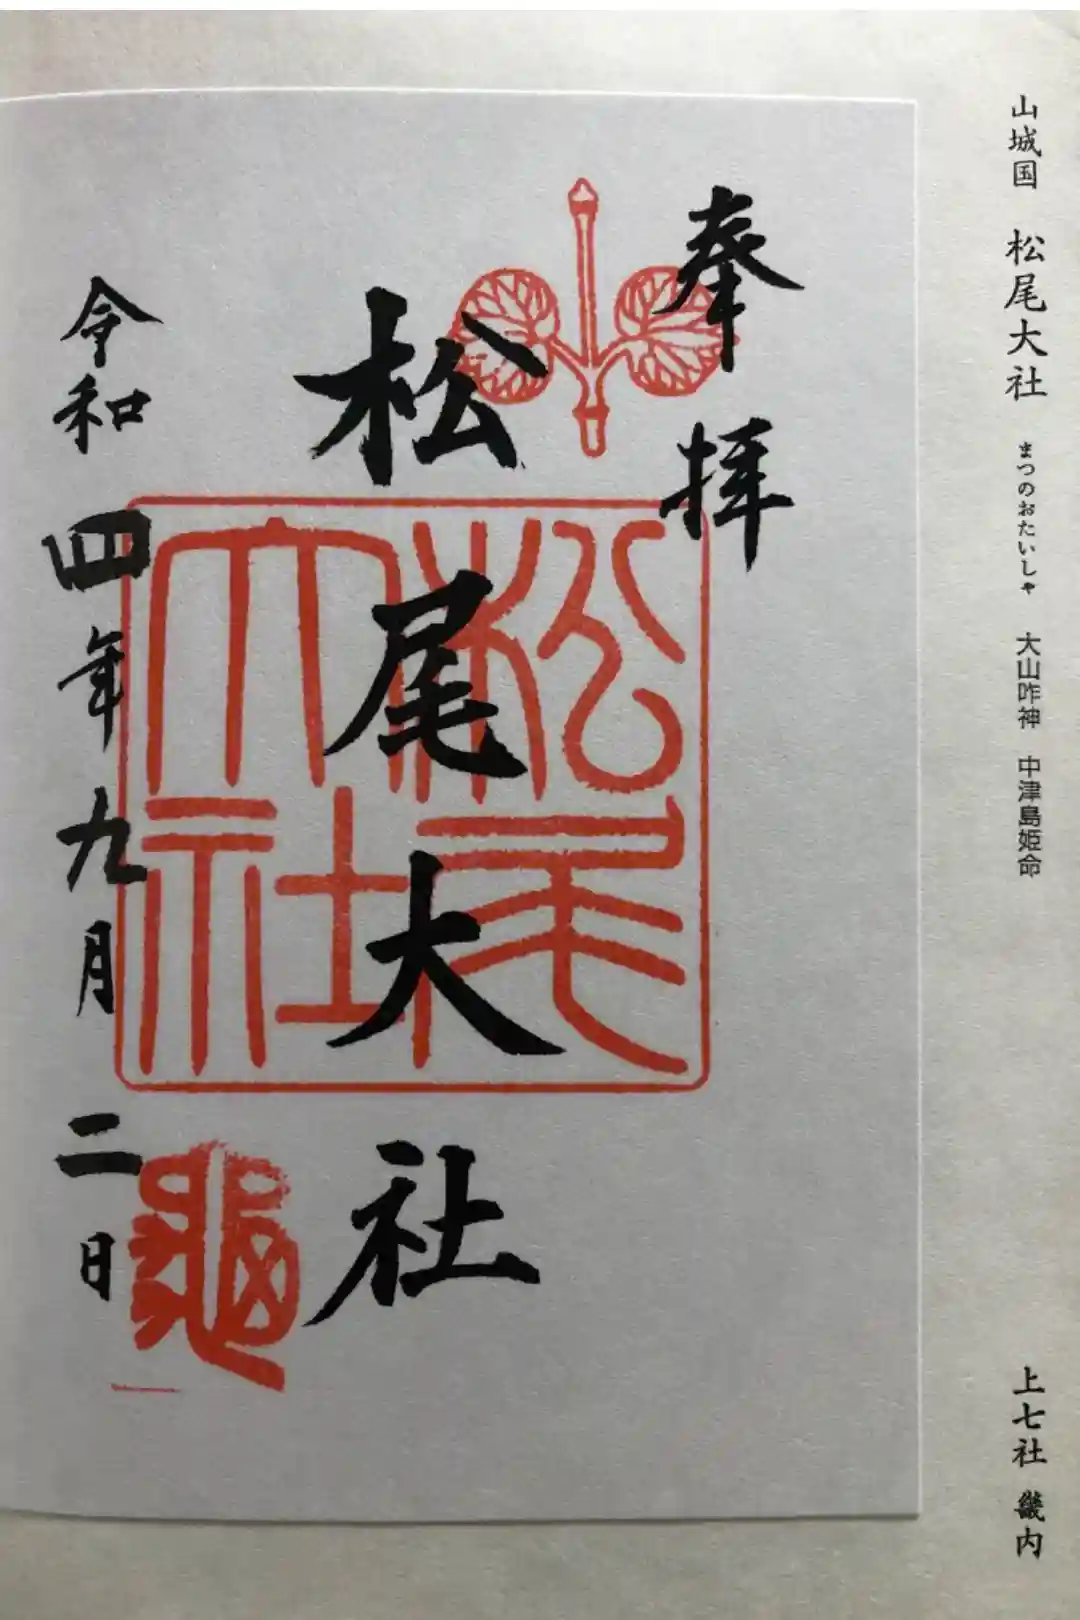 山城国 松尾大社 まつのおたいしゃ 大山咋神 中津島姫命
上七社 畿内
奉拝
松尾大社
松尾大社
令和四年九月二日
亀